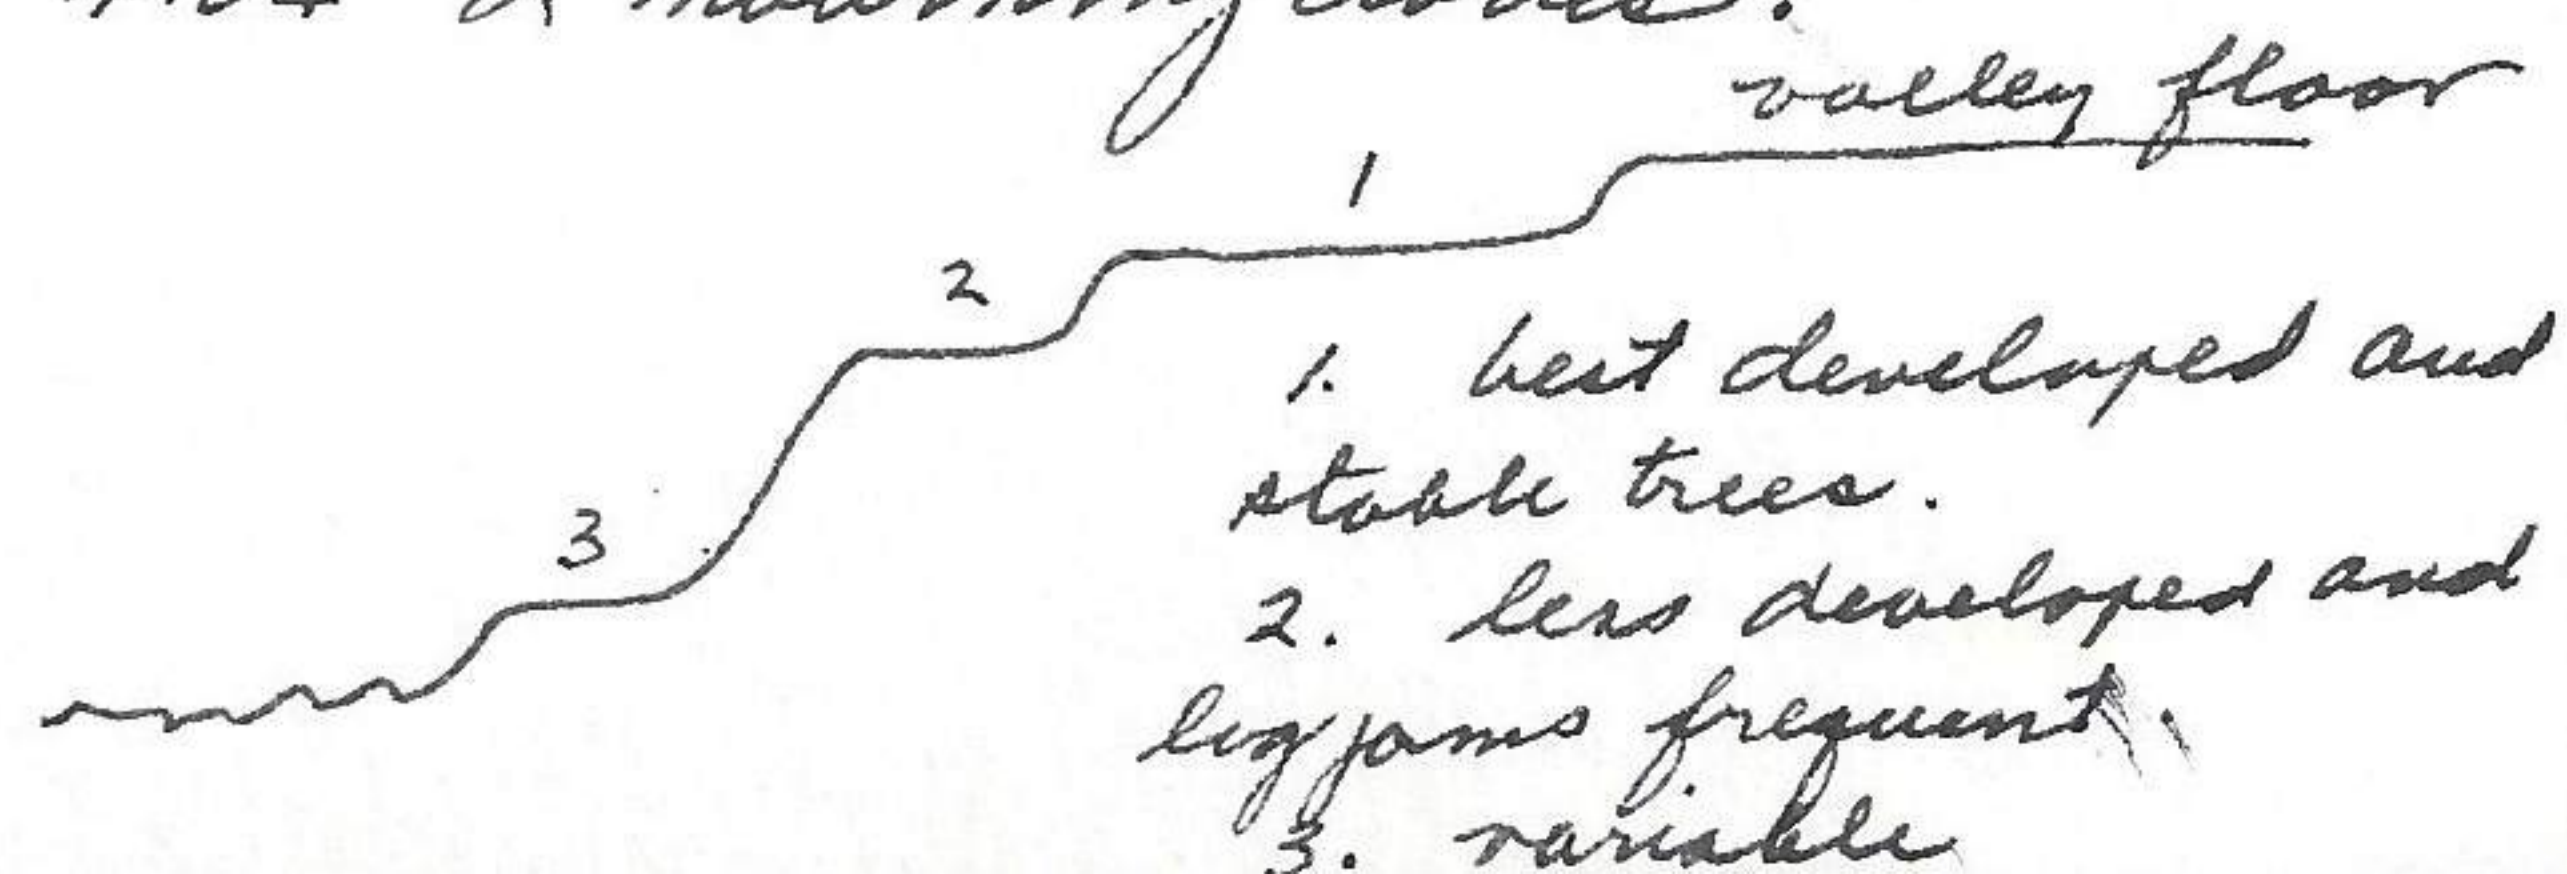 & mourning doves.
valley floor
1
2
3
1. best developed and
stable trees.
2. less developed and
log jams frequent.
3. variable